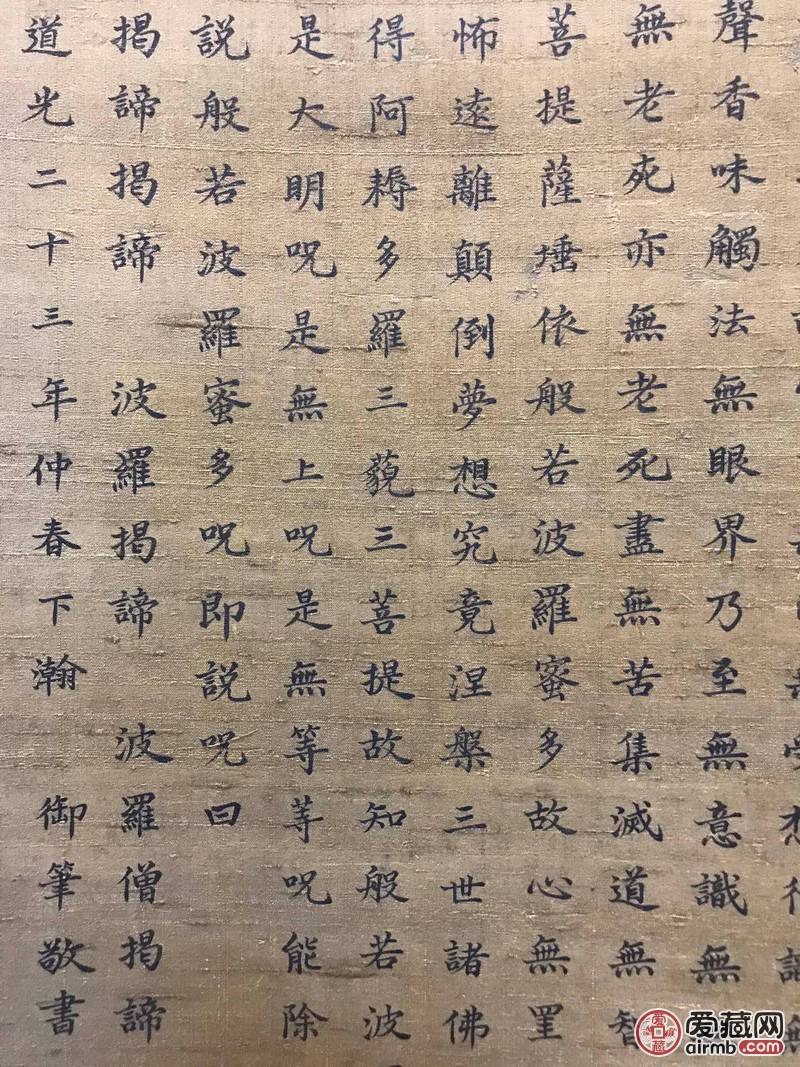 聲香味觸法無眼界乃至無意識無
無老死亦無老死盡無苦集滅道無智
菩提薩埵依般若波羅蜜多故心無罣
怖遠離顛倒夢想究竟涅槃三世諸佛
得阿耨多羅三藐三菩提故知般若波
是大明呪是無上呪是無等等呪能除
説般若波羅蜜多呪即説呪曰
揭諦揭諦 波羅揭諦 波羅僧揭諦
道光二十三年仲春下瀚 御筆敬書
爱藏网
airmb.com